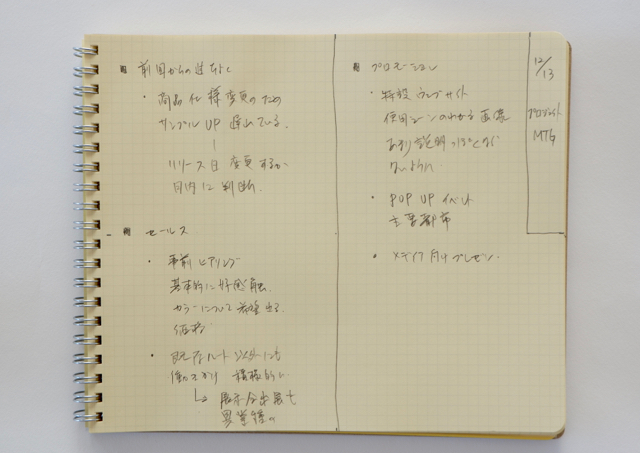 前回からの進ちょく
・商品仕様変更のため
サンプルUP 遅れている。
リリース日 変更するか
月内に判断。
セールス
・事前ヒアリング
基本的に好感触。
カラーについて
価格
・既存ルート
積極的に
展示会出展も
プロモーション
・特設ウェブサイト
使用シーンのわかる画像
あまり説明っぽくなら
ないように
・POP UP イベント
主要都市
・メディア向けプレゼン。
12/13
プロジェクト
MTG